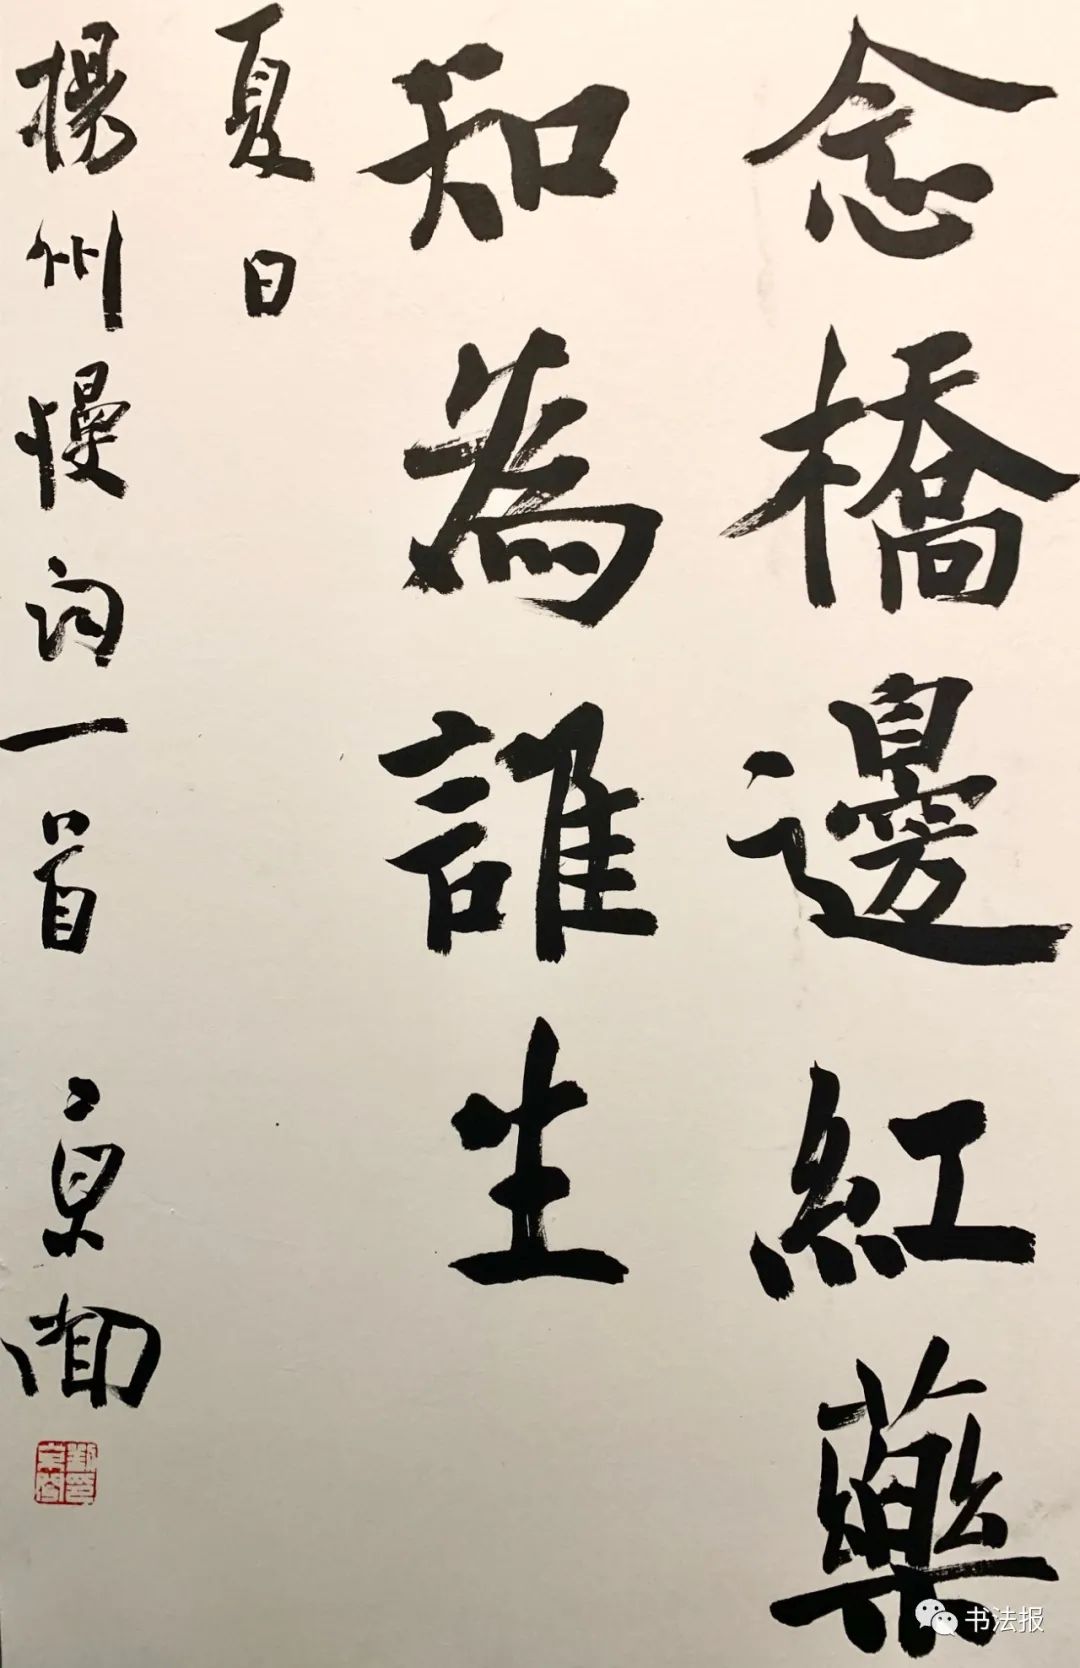 念橋邊紅藥
知為誰生
夏日
揚州慢詞一首 京聞
书法报